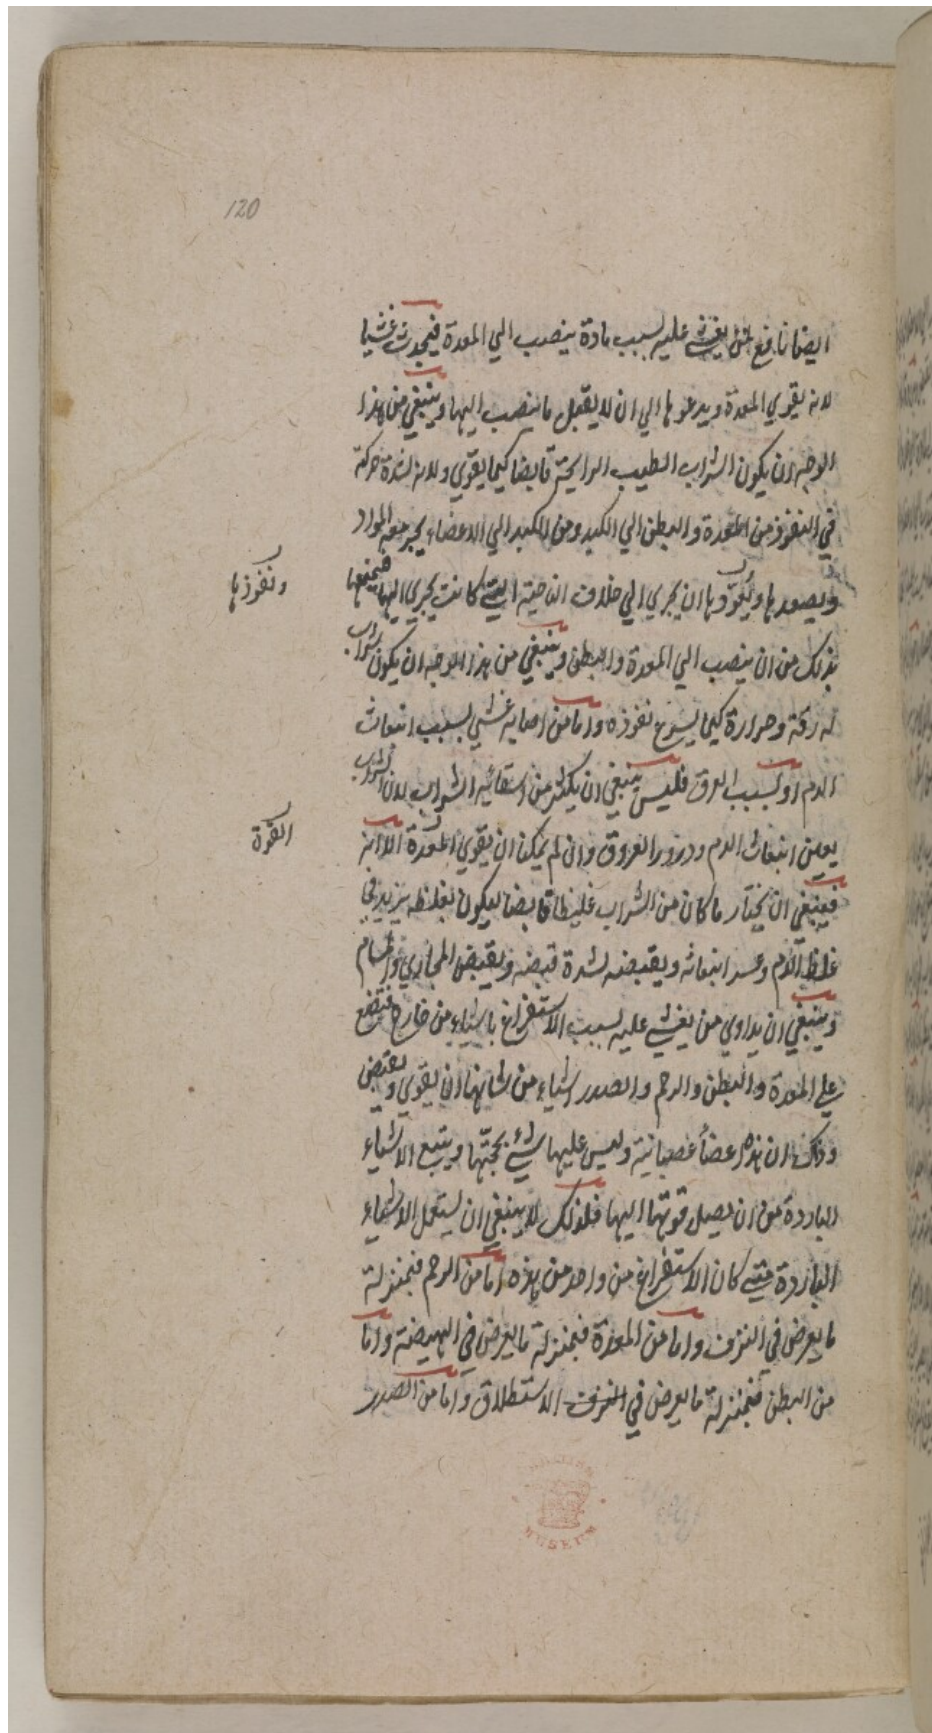 120
ايضا نافع لمن يغشي عليه بسبب مادة ينصب الي المعدة فيحدث غشيا
لانه يقوي المعدة ويدعوها الي ان لا يقبل ما ينصب اليها وينبغي من هذا
الوجه ان يكون الشراب الطيب الرايحة قابضا كيما يقوي ولانه لشدة حركة
في النفوذ من المعدة والبطن الي الكبد ومن الكبد الي الاعضاء يجر معه المواد
ويصعدها ويقودها ان يجري الي خلاف الناحية التي كانت يجري اليها فيمنعها
ونفوذها
بذلك من ان ينصب الي المعدة والبطن وينبغي من هذا الوجه ان يكون شراب
له رقة وحرارة كيما يسرع نفوذه واما من اصابه غشي بسبب انبعاث
الدم او بسبب العرق فليس ينبغي ان يكثر من استقائيه الشراب لان الشراب
يعين انبعاث الدم ودرور العروق وان لم يمكن ان يقوي المعدة الا به
القوة
فينبغي ان يختار ما كان من الشراب غليظا قابضا ليكون بغلظه يزيد في
غلظ الدم وعسر انبعاثه وبقبضه لشدة قبضه ويقبض المجاري والمسام
وينبغي ان يداوي من يغشي عليه بسبب الاستفراغ باشياء من خارج فتضع
علي المعدة والبطن والرحم والصدر اشياء من شانها ان يقوي ويقبض
وذلك ان هذه اعضأ عصبانية وليس عليها شئ يجنها ويتبع الاشياء
الباردة من ان يصل قوتها اليها فلذلك لا ينبغي ان يستعمل الاشياء
الباردة متي كان الاستفراغ من واحد من هذه اما من الرحم فبمنزلة
ما يعرض في النزف واما من المعدة فبمنزلة ما يعرض في الهيضة واما
من البطن فبمنزلة ما يعرض في الاستطلاق واما من الصدر
MUSEUM